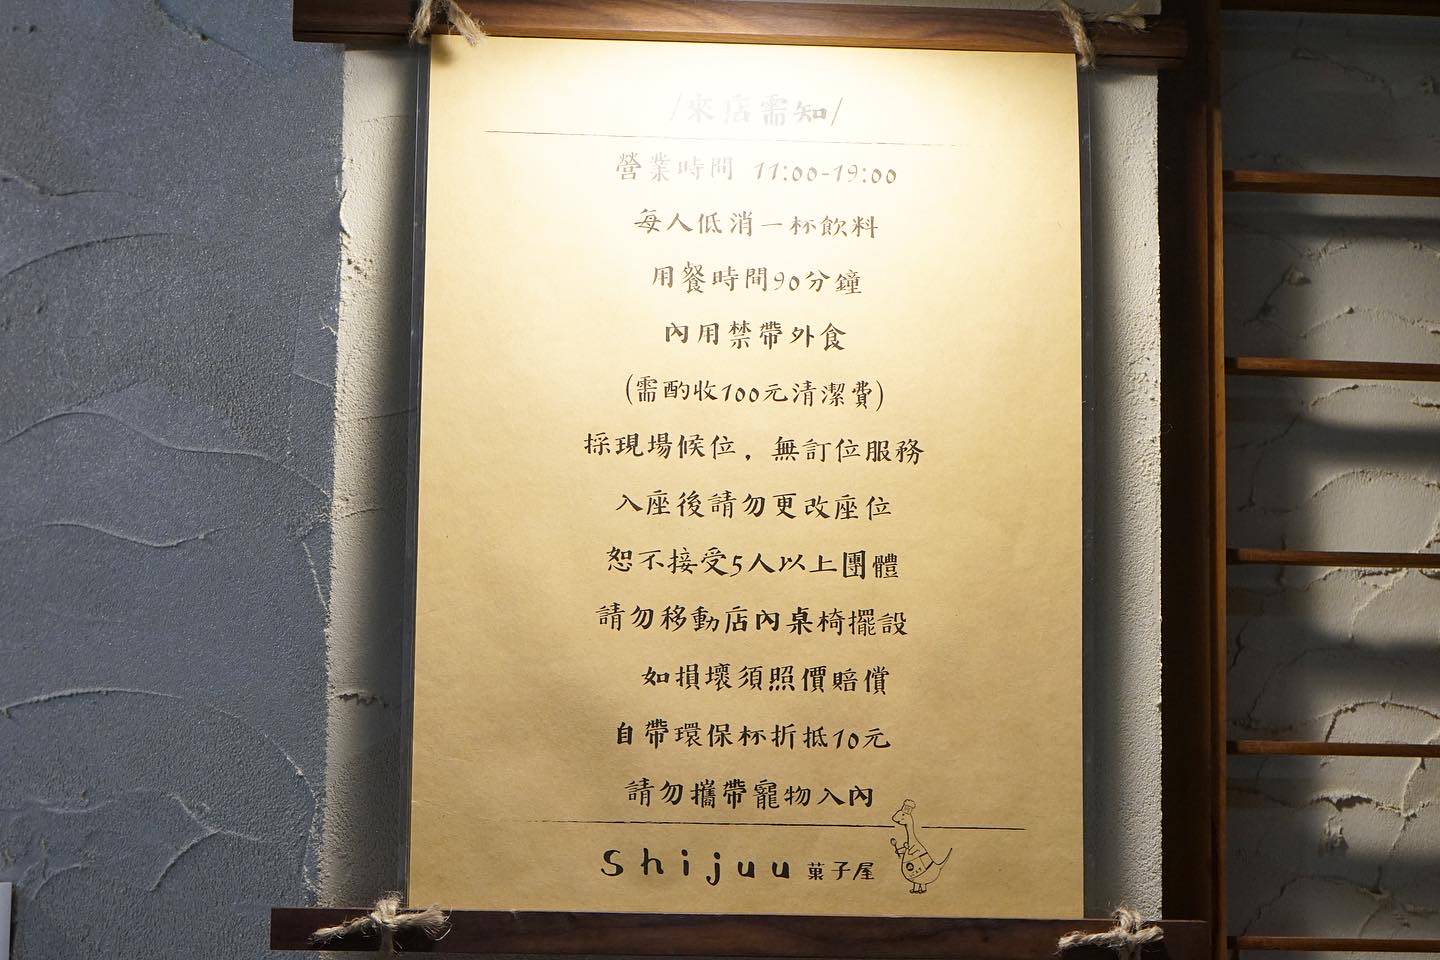 /來店需知/
營業時間 11:00-19:00
每人低消一杯飲料
用餐時間90分鐘
內用禁帶外食
(需酌收100元清潔費)
採現場候位，無訂位服務
入座後請勿更改座位
恕不接受5人以上團體
請勿移動店內桌椅擺設
如損壞須照價賠償
自帶環保杯折抵10元
請勿攜帶寵物入內
Shijuu 菓子屋